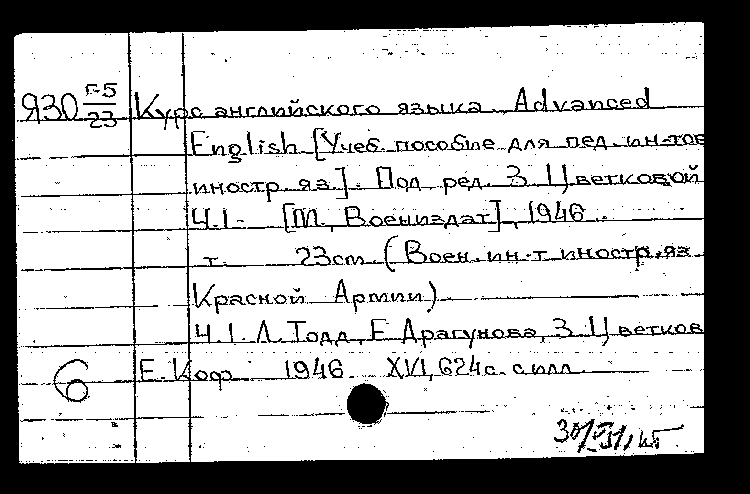 Я30 Г-5/23 Курс английского языка. Advanced
English [Учеб. пособие для пед. ин-тов
иностр. яз]. Под ред. З. Цветковой
Ч.1- [М., Воениздат], 1946.
т. 23см. (Воен. ин-т иностр. яз
Красной Армии)
Ч.1. Л. Тодд, Е. Драгунова, З. Цветков
Е. Коф 1946. XVI, 624с. с илл.
6